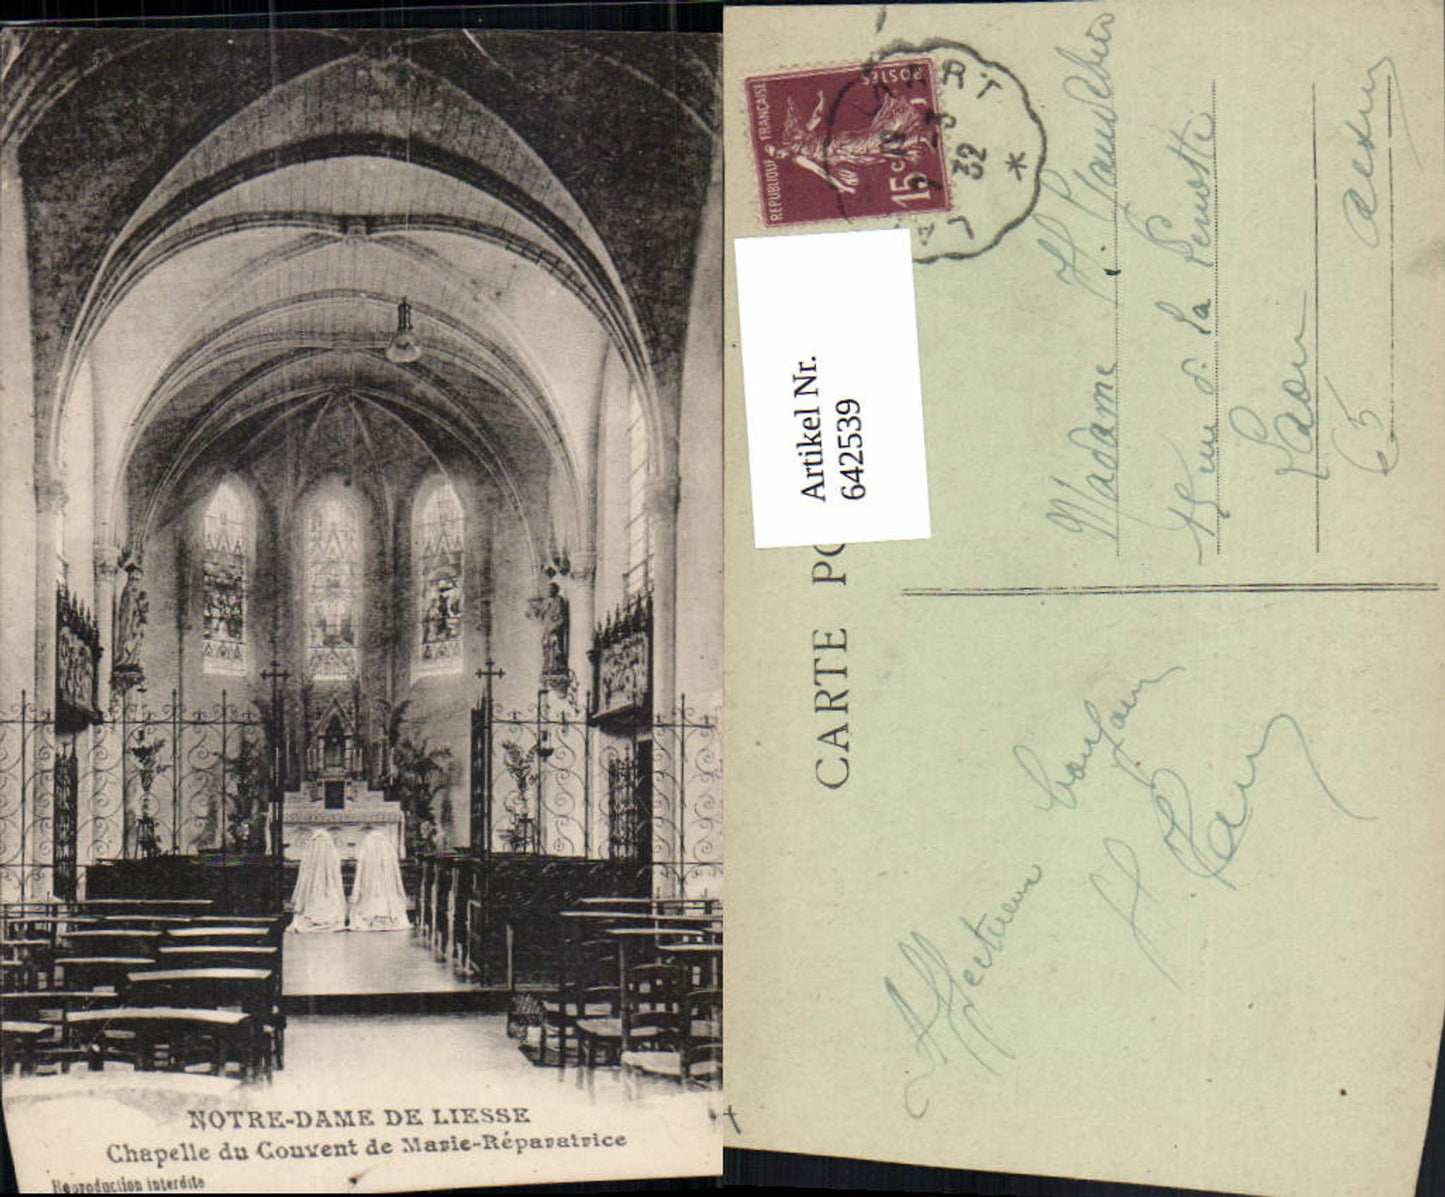 NOTRE-DAME DE LIESSE
Chapelle du Couvent de Marie-Réparatrice
Reproduction interdite
REPUBLIQUE FRANÇAISE
POSTES
15c
23
32
*
Artikel Nr.
642539
CARTE PO
Madame H.
15 rue de la
Laon
65
Aisne
Affectueux